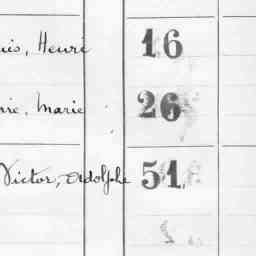 Henri 16
Marie 26
Victor, Adolphe 51